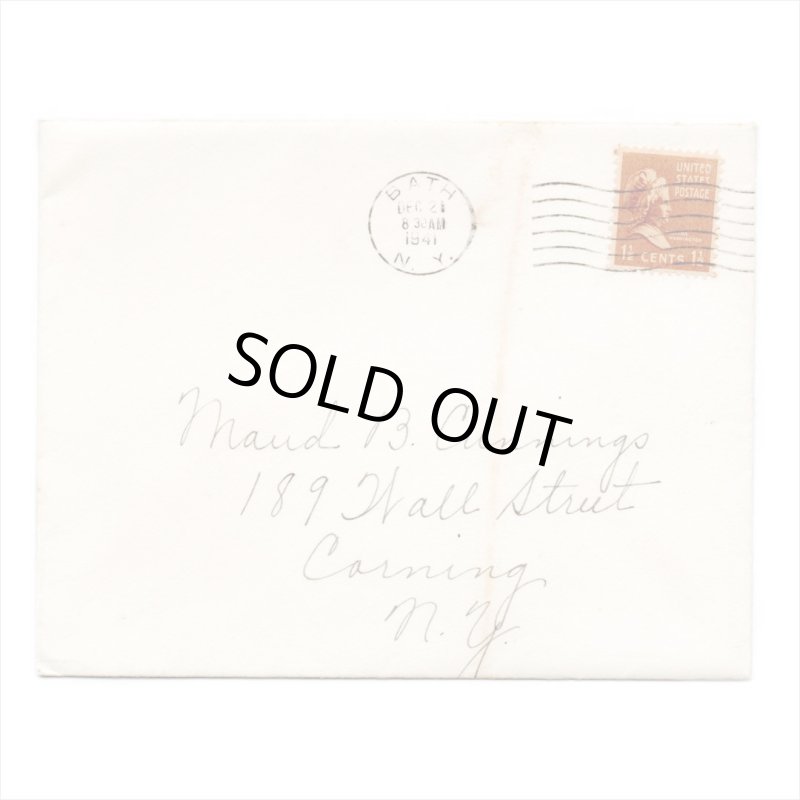 BATH
DEC 21
8 30 AM
1941
N. Y.
UNITED
STATES
POSTAGE
1½ CENTS 1½
SOLD OUT
Maud B. Cunnings
189 Wall Street
Corning
N.Y.